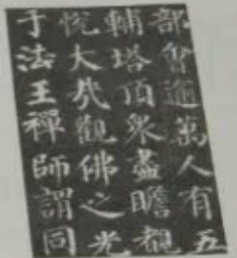 部會適萬人有五
輔塔頂衆盡瞻覩
悅大哉觀佛之光
于法王禪師謂同